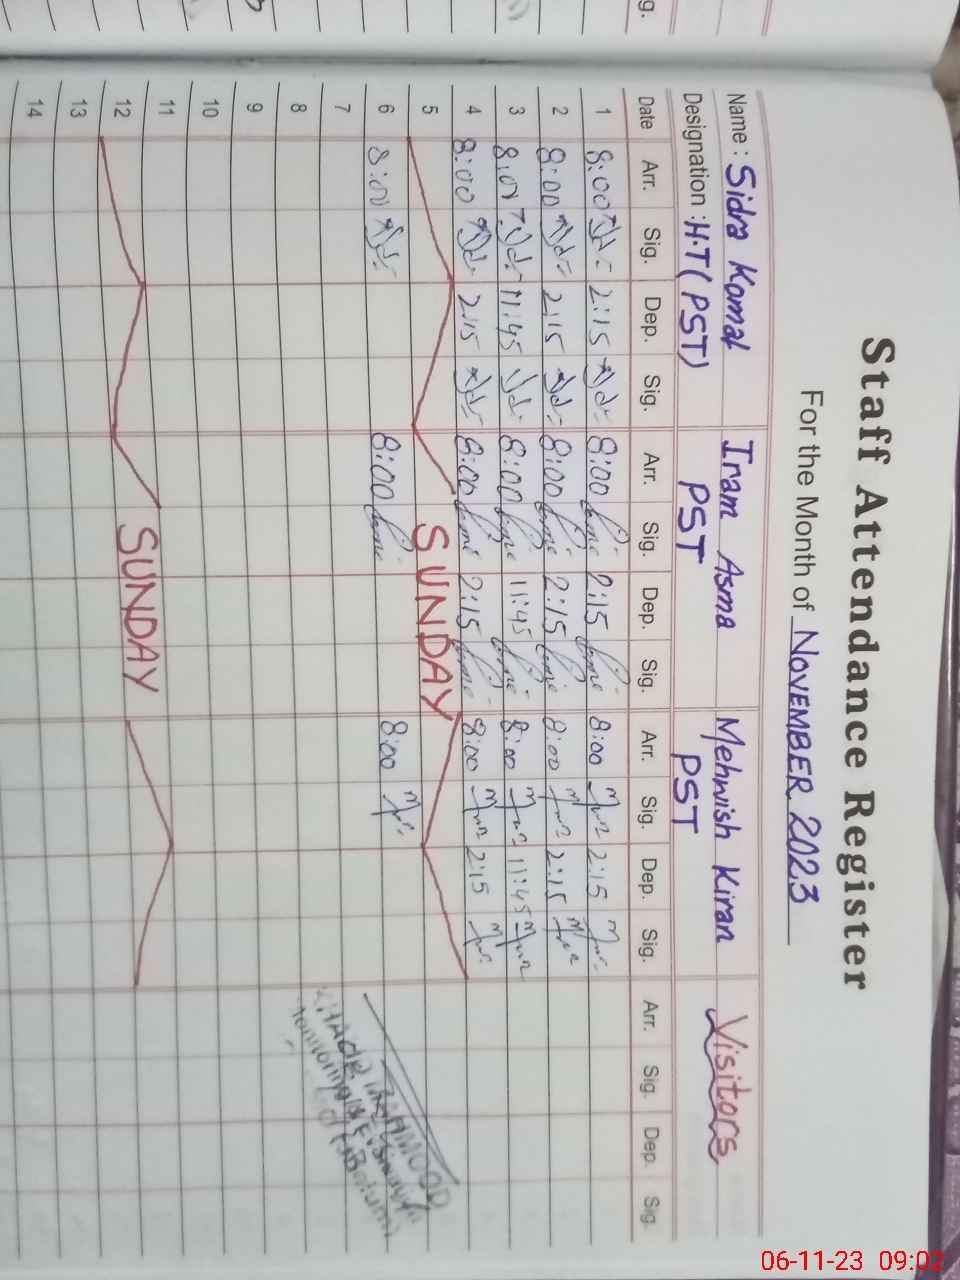 Staff Attendance Register
For the Month of NOVEMBER 2023
Name : Sidra Kamal Iram Asma Mehwish Kiran Visitors
Designation : H.T ( PST) PST PST
Date Arr. Sig. Dep. Sig. Arr. Sig. Dep. Sig. Arr. Sig. Dep. Sig. Arr. Sig. Dep. Sig.
1 8:00 2:15 8:00 2:15 8:00 2:15
2 8:00 2:15 8:00 2:15 8:00 2:15
3 11:45 8:00 11:45 8:00 11:45
4 8:00 2:15 8:00 2:15 8:00 2:15
5 SUNDAY
6 8:00 8:00
7
8
9
10
11
12 SUNDAY
13
14
06-11-23 09:02